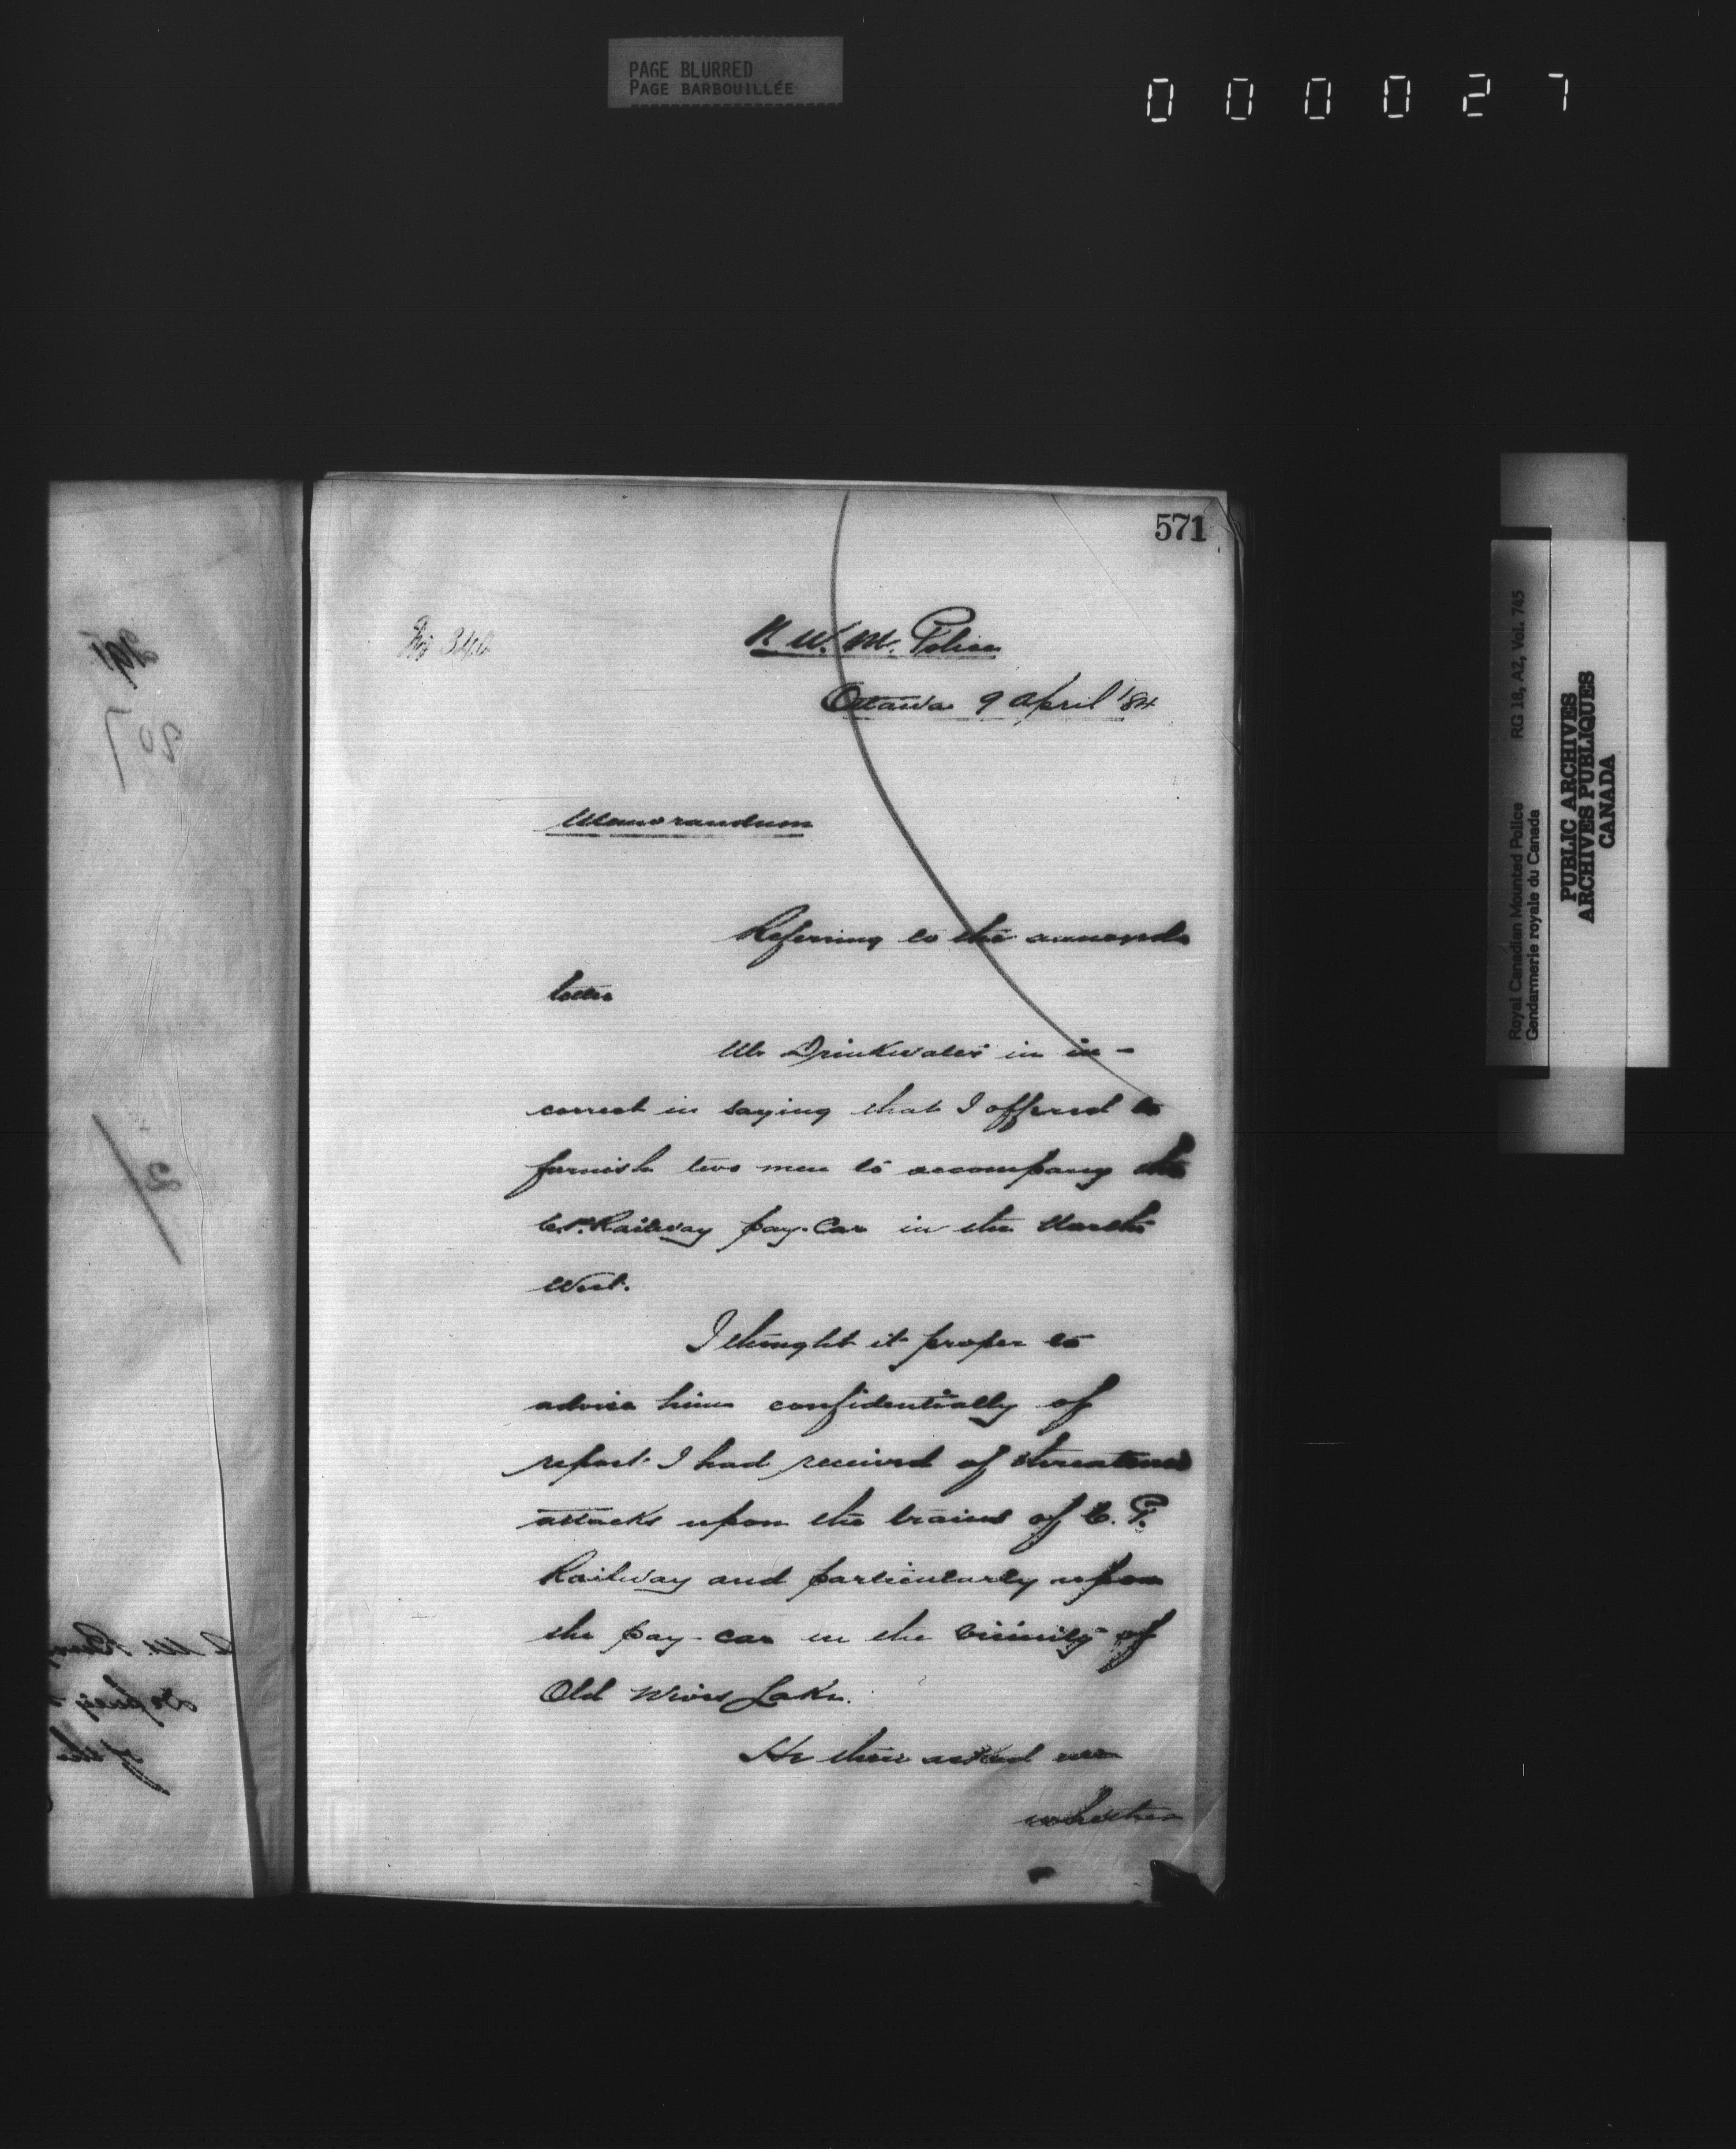 PAGE BLURRED
PAGE BARBOUILLÉE
000027
571
N. W. M. Police
Ottawa 9 April '84
Memorandum
Referring to the annexed
letter
Mr Drinkwater is in-
correct in saying that I offered to
furnish two men to accompany the
C.P. Railway pay-Car in the North
West.
I thought it proper to
advise him confidentially of
report I had received of threatened
attacks upon the trains of C. P.
Railway and particularly upon
the pay-car in the vicinity of
Old Wives Lake.
He then asked me
whether
Royal Canadian Mounted Police RG 18, A2, Vol. 745
Gendarmerie royale du Canada
PUBLIC ARCHIVES
ARCHIVES PUBLIQUES
CANADA